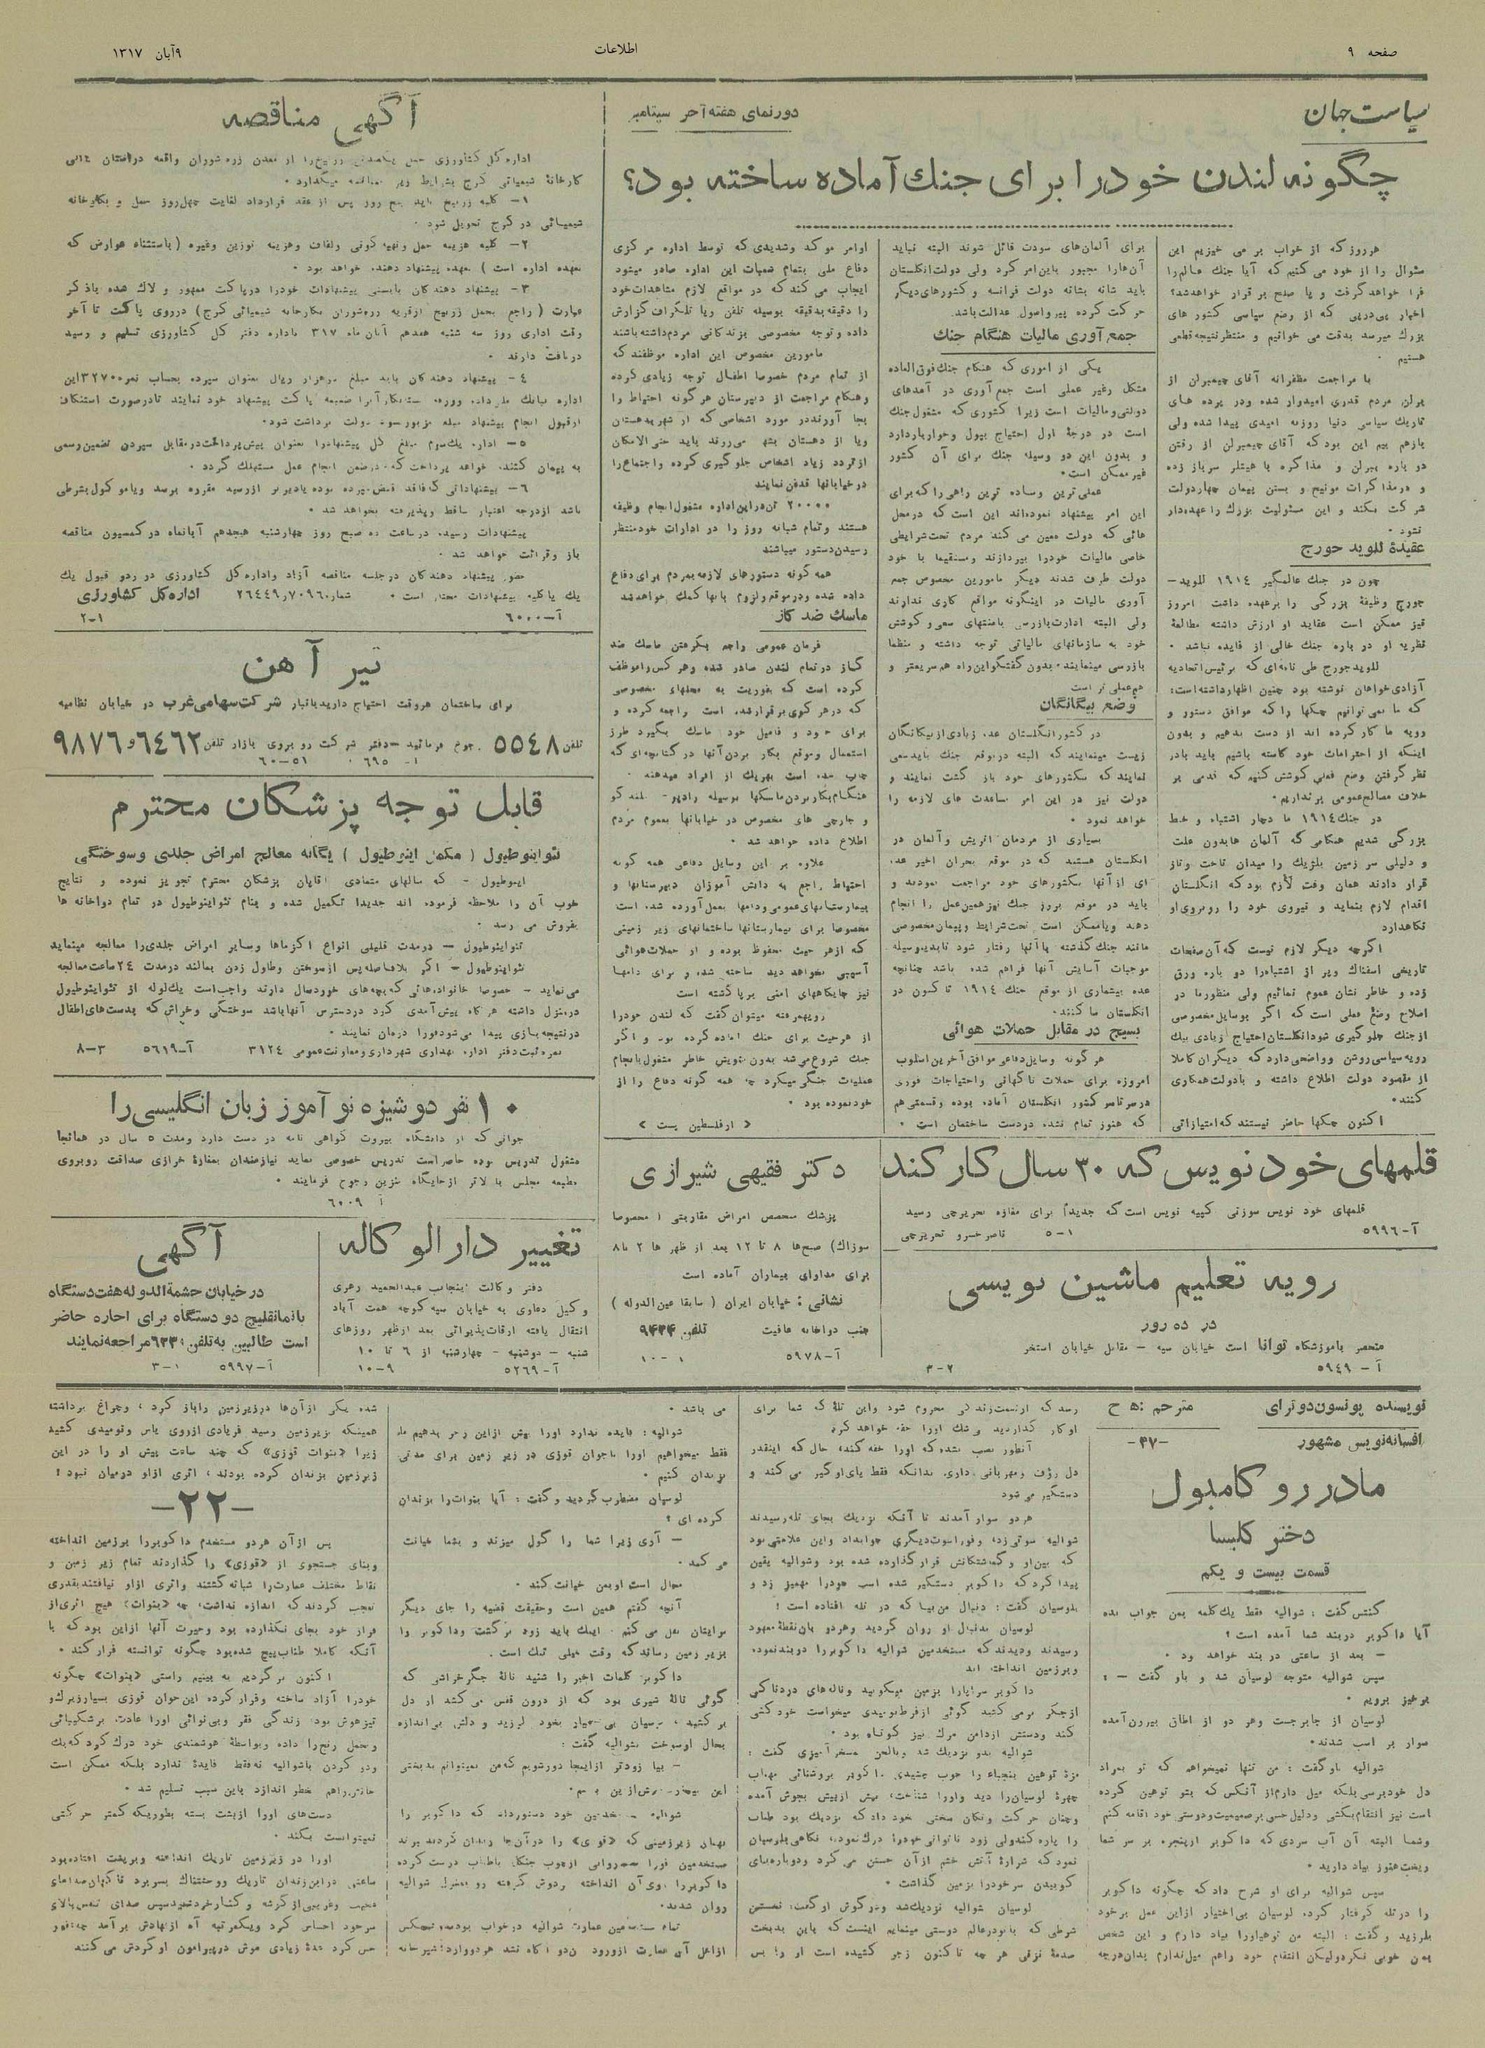 صفحه ۹
اطلاعات
۹ آبان ۱۳۱۷
سیاست جهان
دورنمای هفته آخر سپتامبر
چگونه لندن خود را برای جنگ آماده ساخته بود؟
هر روز که از خواب بر می خیزیم این
سئوال را از خود می کنیم که آیا جنك عالم را
فرا خواهد گرفت و یا صلح برقرار خواهد شد؟
اخبار پی در پی که از وضع سیاسی کشور های
بزرك میرسد بدقت می خوانیم و منتظر نتیجه قطعی
هستیم .
با مراجعت مظفرانه آقای چمبرلن از
برلن مردم قدری امیدوار شده و در پرده های
تاریك سیاسی دنیا روزنه امیدی پیدا شده ولی
بازهم بیم این بود که آقای چمبرلن از رفتن
دو باره ببرلن و مذاکره با هیتلر سرباز زده
و در مذاکرات مونیخ و بستن پیمان چهار دولت
شرکت نکند و این مسئولیت بزرك را عهده دار
نشود .
عقیدهٔ للوید جورج
چون در جنك عالمگیر ۱۹۱۴ للوید-
جورج وظیفهٔ بزرگی را بر عهده داشت امروز
نیز ممکن است عقاید او ارزش داشته مطالعهٔ
نظریه او در باره جنك خالی از فایده نباشد .
للوید جورج طی نامه ای که برئیس اتحادیه
آزادی خواهان نوشته بود چنین اظهار داشته است:
که ما نمی توانیم چکها را که موافق دستور و
رویه ما کار کرده اند از دست بدهیم و بدون
اینکه از احترامات خود کاسته باشیم باید با در
نظر گرفتن وضع فعلی کوشش کنیم که قدمی بر
خلاف مصالح عمومی برنداریم .
در جنك ۱۹۱۴ ما دچار اشتباه و خبط
بزرگی شدیم هنگامی که آلمان ها بدون علت
و دلیلی سر زمین بلژیك را میدان تاخت و تاز
قرار دادند همان وقت لازم بود که انگلستان
اقدام لازم بنماید و نیروی خود را روبروی او
نگاهدارد
اگر چه دیگر لازم نیست که آن صفحات
تاریخی اسفناك و پر از اشتباه را دو باره ورق
زده و خاطر نشان عموم نمائیم ولی منظور ما در
اصلاح وضع فعلی است که اگر بوسایل مخصوصی
از جنك جلوگیری شود انگلستان احتیاج زیادی بیك
رویه سیاسی روشن و واضحی دارد که دیگران کاملا
از مقصود دولت اطلاع داشته و با دولت همکاری
کنند .
اکنون چکها حاضر نیستند که امتیازاتی
برای آلمان های سودت قائل شوند البته نباید
آن ها را مجبور باین امر کرد ولی دولت انگلستان
باید شانه بشانه دولت فرانسه و کشور های دیگر
حرکت کرده پیرو اصول عدالت باشد .
جمع آوری مالیات هنگام جنك
یکی از اموری که هنگام جنك فوق العاده
مشکل و غیر عملی است جمع آوری در آمدهای
دولتی و مالیات است زیرا کشوری که مشغول جنك
است در درجهٔ اول احتیاج بپول و خوار بار دارد
و بدون این دو وسیله جنك برای آن کشور
غیر ممکن است .
عملی ترین و ساده ترین راهی را که برای
این امر پیشنهاد نموده اند این است که در محل
هائی که دولت معین می کند مردم تحت شرایطی
خاص مالیات خود را بپردازند و مستقیما با خود
دولت طرف شدند دیگر مامورین مخصوص جمع
آوری مالیات در اینگونه مواقع کاری ندارند
ولی البته ادارات بازرسی با منتهای سعی و کوشش
خود به سازمانهای مالیاتی توجه داشته و منظما
بازرسی مینمایند . بدون گفتگو این راه هم سریعتر و
هم عملی تر است
وضع بیگانگان
در کشور انگلستان عده زیادی از بیگانگان
زیست مینمایند که البته در موقع جنك باید سعی
نمایند که بکشورهای خود باز گشت نمایند و
دولت نیز در این امر مساعدت های لازمه را
خواهد نمود .
بسیاری از مردمان اتریش و آلمان در
انگلستان هستند که در موقع بحران اخیر عده
ای از آنها بکشورهای خود مراجعت نمودند و
باید در موقع بروز جنك نیز همین عمل را انجام
دهند و یا ممکن است تحت شرایط و پیمان مخصوصی
مانند جنك گذشته با آنها رفتار شود تا بدینوسیله
موجبات آسایش آنها فراهم شده باشد چنانچه
عده بیشماری از موقع جنك ۱۹۱۴ تاکنون در
انگلستان ماندند .
بسیج در مقابل حملات هوائی
هر گونه وسایل دفاعی موافق آخرین اسلوب
امروزه برای حملات ناگهانی و احتیاجات فوری
در سرتاسر کشور انگلستان آماده بوده و قسمتی هم
که هنوز تمام نشده در دست ساختمان است .
اوامر موکد و شدیدی که توسط اداره مرکزی
دفاع ملی بتمام شعبات این اداره صادر میشود
ایجاب می کند که در مواقع لازم مشاهدات خود
را دقیقه بدقیقه بوسیله تلفن و یا تلگراف گزارش
داده و توجه مخصوصی بزندگانی مردم داشته باشند
مامورین مخصوص این اداره موظفند که
از تمام مردم خصوصا اطفال توجه زیادی کرده
و هنگام مراجعت از دبیرستان هر گونه احتیاط را
بجا آورند در مورد اشخاصی که از شهر بدهستان
و یا از دهستان بشهر می روند باید حتی الامکان
از تردد زیاد اشخاص جلوگیری کرده و اجتماع را
در خیابانها قدغن نمایند
۲۰۰۰۰ تن در این اداره مشغول انجام وظیفه
هستند و تمام شبانه روز را در ادارات خود منتظر
رسیدن دستور میباشند
همه گونه دستورهای لازمه بمردم برای دفاع
داده شده و در موقع لزوم بآنها کمك خواهد شد
ماسك ضد گاز
فرمان عمومی راجع بگرفتن ماسك ضد
گاز در تمام لندن صادر شده و هر کس را موظف
کرده است که بفوریت به محلهای مخصوصی
که در هر کوی برقرار شده است مراجعه کرده و
برای خود و فامیل خود ماسك بگیرد طرز
استعمال و موقع بکار بردن آنها در کتابچه ای که
چاپ شده است بهریك از افراد میدهند .
هنگام بکار بردن ماسکها بوسیله رادیو - بلندگو
و جارچی های مخصوص در خیابانها بعموم مردم
اطلاع داده خواهد شد .
علاوه بر این وسایل دفاعی همه گونه
احتیاط راجع به دانش آموزان دبیرستانها و
بیمارستانهای عمومی و دامها بعمل آورده شده است
مخصوصا برای بیمارستانها ساختمانهای زیر زمینی
که از هر حیث محفوظ بوده و از حملات هوائی
آسیبی نخواهد دید ساخته شده و برای دامها
نیز جایگاههای امنی بر پا گشته است
رویهمرفته میتوان گفت که لندن خود را
از هر حیث برای جنك آماده کرده بود و اگر
جنك شروع می شد بدون تشویش خاطر مشغول بانجام
عملیات جنگی میگردد چه همه گونه دفاع را از
خود نموده بود .
« از فلسطین پست »
آگهی مناقصه
شیمیائی در کرج تحویل شود .
۲- کلیه هزینه حمل و تهیه گونی و لفاف و هزینه توزین و غیره (باستثناء عوارض که
بعهده اداره است ) بعهده پیشنهاد دهنده خواهد بود .
۳- پیشنهاد دهندگان بایستی پیشنهادات خود را در پاکت ممهور و لاك شده با ذکر
عبارت ( راجع بحمل زرنیخ از قریه زره شوران بکارخانه شیمیائی کرج ) در روی پاکت تا آخر
وقت اداری روز سه شنبه هفدهم آبان ماه ۳۱۷ باداره دفتر کل کشاورزی تسلیم و رسید
دریافت دارند .
از قبول انجام پیشنهاد مبلغ مزبور بسود دولت برداشت شود .
۵- اداره یك سوم مبلغ کل پیشنهاد را بعنوان پیش پرداخت در مقابل سپردن تضمین رسمی
به پیمان کننده خواهد پرداخت که در ضمن انجام عمل مستهلك گردد .
۶- پیشنهاداتی که فاقد قبض سپرده بوده یا دیرتر از رسید مقرره برسد و یا موکول بشرطی
باشد از درجه اعتبار ساقط و پذیرفته نخواهد شد .
پیشنهادات رسیده در ساعت ده صبح روز چهارشنبه هیجدهم آبانماه در کمسیون مناقصه
باز و قرائت خواهد شد .
حضور پیشنهاد دهندگان در جلسه مناقصه آزاد و اداره کل کشاورزی در رد و قبول یك
یك یا کلیه پیشنهادات مختار است . شماره ۷۰۹۶ر۲۶۴۴۹ اداره کل کشاورزی
آ-۶۰۰۰ ۲-۱
تیر آهن
برای ساختمان هر وقت احتیاج دارید بانبار شرکت سهامی غرب در خیابان نظامیه
تلفن ۵۵۴۸ رجوع فرمائید - دفتر شرکت رو بروی بازار تلفن ۶۴۶۲ و ۹۸۷۶
قابل توجه پزشکان محترم
نئواینوطیول ( مکمل اینوطیول ) یگانه معالج امراض جلدی و سوختگی
اینوطیول - که سالهای متمادی آقایان پزشکان محترم تجویز نموده و نتایج
خوب آن را ملاحظه فرموده اند جدیدا تکمیل شده و بنام نئواینوطیول در تمام دواخانه ها
بفروش می رسد .
نئواینوطیول - در مدت قلیلی انواع اکزماها و سایر امراض جلدی را معالجه مینماید
نئواینوطیول - اگر بلافاصله پس از سوختن و طاول زدن بمالند در مدت ۲۴ ساعت معالجه
می نماید - خصوصا خانواده هائی که بچه های خوردسال دارند واجب است یك لوله از نئواینوطیول
در منزل داشته هر گاه پیش آمدی کرد در دسترس آنها باشد سوختگی و خراش که بدست های اطفال
در نتیجه بازی پیدا می شود فورا درمان نمایند .
نمره ثبت دفتر اداره بهداری شهرداری و معاونت عمومی ۳۱۲۴ آ-۵۶۱۹ ۸-۳
۱۰ نفر دوشیزه نو آموز زبان انگلیسی را
جوانی که از دانشگاه بیروت گواهی نامه در دست دارد و مدت ۵ سال در همانجا
مشغول تدریس بوده حاضر است تدریس خصوصی نماید نیازمندان بمغازهٔ خرازی صداقت روبروی
مطبعه مجلس بالاتر از جایگاه بنزین رجوع فرمایند .
آ ۶۰۰۹
قلمهای خود نویس که ۳۰ سال کار کند
قلمهای خود نویس سوزنی کپیه نویس است که جدیداً برای مغازه تحریرچی رسید
آ-۵۹۹۶ ۵-۱ ناصر خسرو تحریرچی
رویه تعلیم ماشین نویسی
در ده روز
منحصر بآموزشگاه توانا است خیابان سپه - مقابل خیابان استخر
آ - ۵۹۴۹ ۳-۲
دکتر فقیهی شیرازی
پزشك متخصص امراض مقاربتی ( مخصوصا
سوزاك) صبح ها ۸ تا ۱۲ بعد از ظهر ها ۲ تا ۸
برای مداوای بیماران آماده است
نشانی : خیابان ایران ( سابقا عین الدوله )
جنب دواخانه عافیت تلفن ۹۴۳۴
آ-۵۹۷۸ ۱۰-۱
تغییر دارالوکاله
دفتر وکالت اینجانب عبدالحمید زهری
وکیل دعاوی به خیابان سپه کوچه همت آباد
انتقال یافته اوقات پذیرائی بعد از ظهر روزهای
شنبه - دوشنبه - چهارشنبه از ۶ تا ۱۰
آ-۵۲۶۹ ۱۰-۹
آگهی
در خیابان حشمة الدوله هفت دستگاه
است طالبین به تلفن ۶۲۳۱ مراجعه نمایند
آ-۵۹۹۷ ۳-۱
نویسنده پونسون دوترای مترجم : ه ح
افسانه نویس مشهور -۳۷-
مادر رو کامبول
دختر کلیسا
قسمت بیست و یکم
کنتس گفت : شوالیه فقط یك کلمه بمن جواب بده
آیا داکوبر در بند شما آمده است ؟
- بعد از ساعتی در بند خواهد بود .
سپس شوالیه متوجه لوسیان شد و باو گفت - :
برخیز برویم .
لوسیان از جا برجست و هر دو از اطاق بیرون آمده
سوار بر اسب شدند .
شوالیه باو گفت : من تنها نمیخواهم که تو بمراد
دل خود برسی بلکه میل دارم از آنکس که بتو توهین کرده
است نیز انتقام بکشی و دلیل حسی بر صمیمیت و دوستی خود اقامه کنم
و شما البته آن آب سردی که داکوبر از پنجره بر سر شما
ریخت هنوز بیاد دارید .
سپس شوالیه برای او شرح داد که چگونه داکوبر
را در تله گرفتار کرده لوسیان بی اختیار از این عمل بر خود
بلرزید و گفت : البته من توهین او را بیاد دارم و این شخص
بمن خوبی نکرد ولیکن انتقام خود را هم میل ندارم بدان درجه
رسد که او نسمت زندگی محروم شود و این تلهٔ که شما برای
او کار گذاردید بی شك او را خفه خواهد کرد
آنطور نصب نشده که او را خفه کند ، حال که اینقدر
دل رؤف و مهربانی داری بدانکه فقط پای او گیر می کند و
دستگیر می شود
هر دو سوار آمدند تا آنکه نزدیك بجای تله رسیدند
شوالیه سوتی زد و فورا سوت دیگری جواب داد و این علامتی بود
که بین او و گماشتگانش قرار گذارده شده بود و شوالیه یقین
پیدا کرد که داکوبر دستگیر شده اسب خود را مهمیز زد و
بلوسیان گفت : دنبال من بیا که در تله افتاده است !
لوسیان بدنبال او روان گردید و هر دو بآن نقطهٔ معهود
رسیدند و دیدند که مستخدمین شوالیه داکوبر را در بند نموده
و بر زمین انداخته اند
داکوبر سر و پا را بزمین میکوبید و ناله های دردناکی
از جگر بر می کشید گوئی از فرط نومیدی میخواست خود کشی
کند و دستش از دامن مرك نیز کوتاه بود .
شوالیه بدو نزدیك شد و با لحن مسخره آمیزی گفت :
مزهٔ توهین بنجباء را خوب چشیدی ؟ داکوبر بروشنائی مهتاب
چهرهٔ لوسیان را دید و او را شناخت ، بیش از پیش بجوش آمده
و چنان حرکت و تکان سختی بخود داد که نزدیك بود طناب
را پاره کند ولی زود ناتوانی خود را درك نمود ، نگاهی بلوسیان
نمود که شرارهٔ آتش خشم از آن جستن می کرد و دوباره پای
کوبیدن سر خود را بزمین گذاشت .
لوسیان شوالیه نزدیك شد و در گوش او گفت : نخستین
شرطی که با تو در عالم دوستی مینمایم اینست که باین بدبخت
صدمهٔ نزنی هر چه تا کنون زجر کشیده است او را بس
می باشد .
شوالیه : فایده ندارد او را بیش از این زجر بدهیم ما
فقط میخواهیم او را با جوان قوزی در زیر زمین برای مدتی
زندان کنیم .
لوسیان مضطرب گردید و گفت : آیا بنوات را بزندان
کرده ای ؟
- آری زیرا شما را گول میزند و بشما خیانت
می کند .
- محال است او بمن خیانت کند .
- آنچه گفتم همین است و حقیقت قضیه را جای دیگر
برایتان نقل می کنم . اینك باید زود برگشت و داکوبر را
بزیر زمین رساند که وقت خیلی تنك است .
داکوبر کلمات اخیر را شنید نالهٔ جگر خراشی که
گوئی نالهٔ شیری بود که از درون قفس می کشد از دل
بر کشید ، لوسیان بی اختیار بخود لرزید و دلش بی اندازه
بحال او سوخت بشوالیه گفت :
- بیا زودتر از اینجا دور شویم که من نمیتوانم بدبختی
شده یکی از آن ها در زیرزمین را باز کرد ، و چراغ برداشته
همینکه بزیرزمین رسید فریادی از روی یاس و نومیدی کشید
زیرا «بنوات قوزی» که چند ساعت پیش او را در این
زیرزمین بزندان کرده بودند ، اثری از او در میان نبود !
-۲۲-
پس از آن هر دو مستخدم داکوبر را بر زمین انداخته
و بنای جستجوی از «قوزی» را گذاردند تمام زیر زمین و
نقاط مختلف عمارت را شبانه گشتند و اثری از او نیافتند بقدری
تعجب کردند که اندازه نداشت ، چه «بنوات» هیچ اثری از
فرار خود بجای نگذارده بود و حیرت آنها از این بود که با
آنکه کاملا طناب پیچ شده بود چگونه توانسته فرار کند .
اکنون برگردیم به بینیم راستی «بنوات» چگونه
خود را آزاد ساخته و فرار کرده این جوان قوزی بسیار زیرك و
تیزهوش بود ، زندگی فقر و بی نوائی او را عادت بر شکیبائی
و تحمل رنج را داده و بواسطهٔ هوشمندی خود درك کرد که یك
و دو کردن با شوالیه نه فقط فایدهٔ ندارد بلکه ممکن است
جانش را هم خطر اندازد باین سبب تسلیم شد .
دست های او را از پشت بسته بطوریکه کمتر حرکتی
نمیتوانست بکند .
او را در زیرزمین تاریك انداخته و برفت افتاده بود
سر خود احساس کرد و یکمرتبه آه از نهادش برآمد چه تصور
حس کرد عدهٔ زیادی موش در پیرامون او گردش می کنند